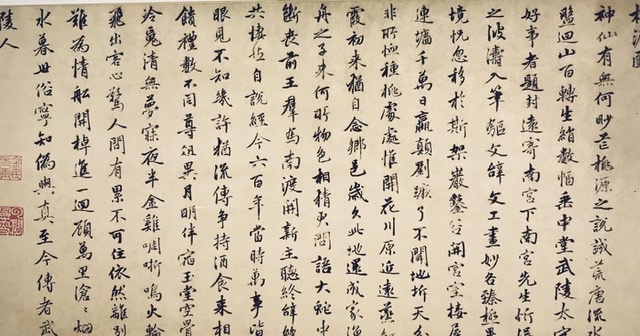 源圖
神仙有無何眇芒桃源之說誠荒唐流
盤迴山百轉生綃數幅垂中堂武陵太守
好事者題封遠寄南宮下南宮先生忻
之波濤入筆驅文辭文工畫妙各臻極
境怳忽移於斯架巖鑿谷開宮室接屋
連墻千萬日嬴顛劉蹶了不聞地坼天分
非所恤種桃處處惟開花川原近遠蒸
霞初來猶自念鄉邑歲久此地還成家漁
舟之子來何所物色相猜更問語大蛇中
斷喪前王羣馬南渡開新主聽終辭絕
共悽然自說經今六百年當時萬事皆
眼見不知幾許猶流傳爭持酒食來相
饋禮數不同尊俎異月明伴宿玉堂空骨
冷魂清無夢寐夜半金雞啁哳鳴火輪
飛出客心驚人間有累不可住依然離別
難為情船開棹進一迴顧萬里滄滄烟
水暮世俗寧知偽與真至今傳者武
陵人